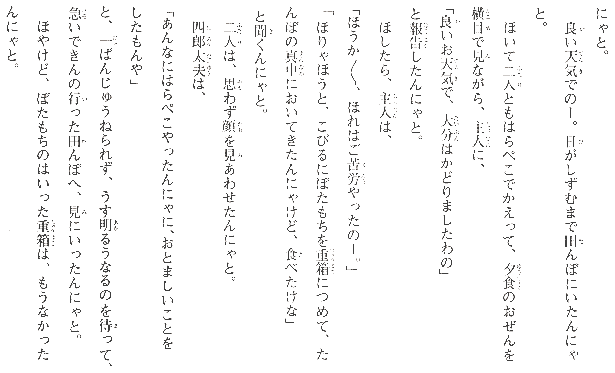 にゃと。
良い天気でのー。日がしずむまで田んぼにいたんにゃ
と。
ほいて二人ともはらぺこでかえって、夕食のおぜんを
横目で見ながら、主人に、
「良いお天気で、大分はかどりましたわの」
と報告したんにゃと。
ほしたら、主人は、
「ほうか〱、ほれはご苦労やったのー。」
「ほりゃほうと、こびるにぼたもちを重箱につめて、た
んぼの真中においてきたんにゃけど、食べたけな」
と聞くんにゃと。
二人は、思わず顔を見あわせたんにゃと。
四郎太夫は、
「あんなにはらぺこやったんにゃに、おとましいことを
したもんや」
と、一ばんじゅうねられず、うす明るうなるのを待って、
急いできんの行った田んぼへ、見にいったんにゃと。
ほやけど、ぼたもちのはいった重箱は、もうなかった
んにゃと。